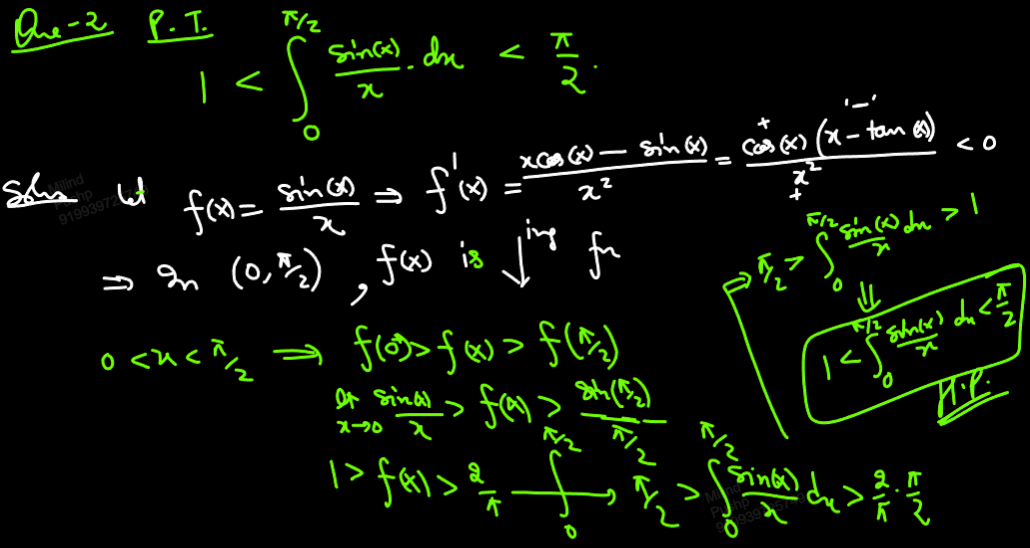 Que-2 P.T.
1 < ∫₀^{π/2} sin(x)/x . dx < π/2.
Soln Let f(x) = sin(x)/x ⇒ f'(x) = (x cos(x) − sin(x))/x² = cos(x) (x − tan(x))/x² < 0
+ '−' +
⇒ In (0, π/2), f(x) is ↓ing fn
0 < x < π/2 ⇒ f(0⁺) > f(x) > f(π/2)
lt x→0 sin(x)/x > f(x) > sin(π/2)/(π/2)
1 > f(x) > 2/π ∫₀^{π/2} → π/2 > ∫₀^{π/2} sin(x)/x dx > 2/π . π/2
⇒ π/2 > ∫₀^{π/2} sin(x)/x dx > 1
⇓
1 < ∫₀^{π/2} sin(x)/x dx < π/2
H.P.
Milind
Pushp
Milind
Pushp